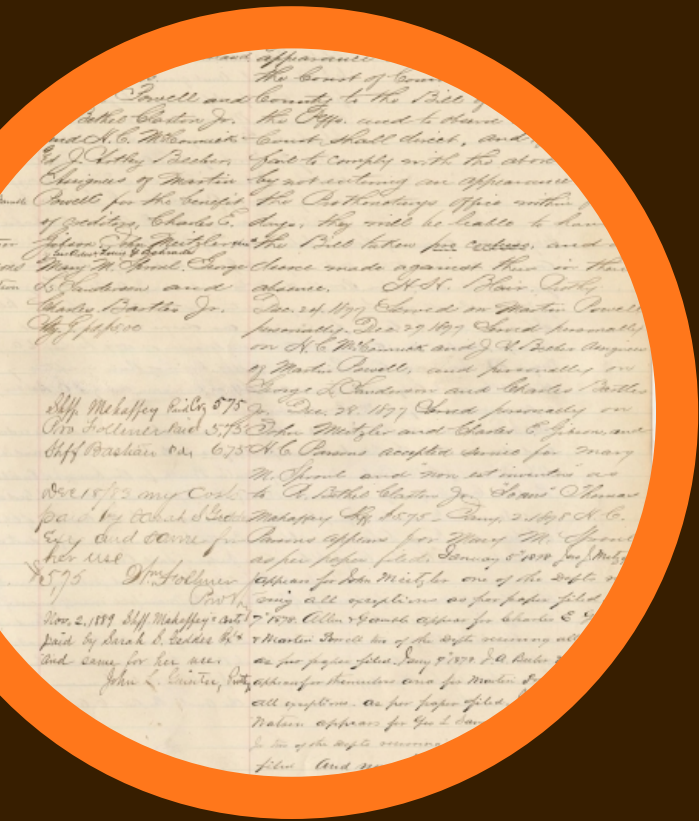 and appearance
the Court of
Powell and
Bethel Claxton Jr.
and H. C. McCormick
J. Artley Beeber,
Assignees of Martin
Powell for the benefit
of creditors, Charles E.
Gibson, John Meitzler
Mary M. Sproul, George
L. Sanderson and
Charles Bartles Jr.
Shff. Mahaffey Paid 575
Pro Follmer Paid 5.75
Shff Bastian Pd. 675
Dec 18/93 my Costs
paid by Sarah S Geddes
Exx and same for
her use
575 Wm Follmer
Nov. 2, 1889 Shff. Mahaffey's costs
paid by Sarah S. Geddes Ex
and same for her use.
John L. Guinter, Proty
County to the Bill of
the Plffs. and to observe
Court shall direct, and
fail to comply with the above
by not entering an appearance
the Prothonotarys office within
days, they will be liable to have
the Bill taken pro confesso, and
decree made against them in their
absence. H. H. Blair, Prothy
Dec. 24, 1877 Served on Martin Powell
personally. Dec. 29 1877 Served personally
on H. C. McCormick and J. A. Beeber Assignees
of Martin Powell, and personally on
George L. Sanderson and Charles Bartles
Jr. Dec. 28. 1877 Served personally on
John Meitzler and Charles E. Gibson, and
H. C. Parsons accepted service for Mary
M. Sproul and "non est inventus" as
to R. Bethel Claxton Jr. "So ans" Thomas
Mahaffey Shff. $575 - Jany. 2. 1878 H. C.
Parsons appears for Mary M. Sproul
as per paper filed. January 5" 1878
appears for John Meitzler one of the Defts
ving all exceptions as per paper filed
7" 1878. Allen & Gamble appear for Charles E
& Martin Powell two of the Defts reserving all
as per paper filed. Jany 9" 1878 J. A. Beeber
appears for themselves and for Martin
all exceptions. as per paper filed.
appears for Geo L
two of the Defts reserving
filed. And